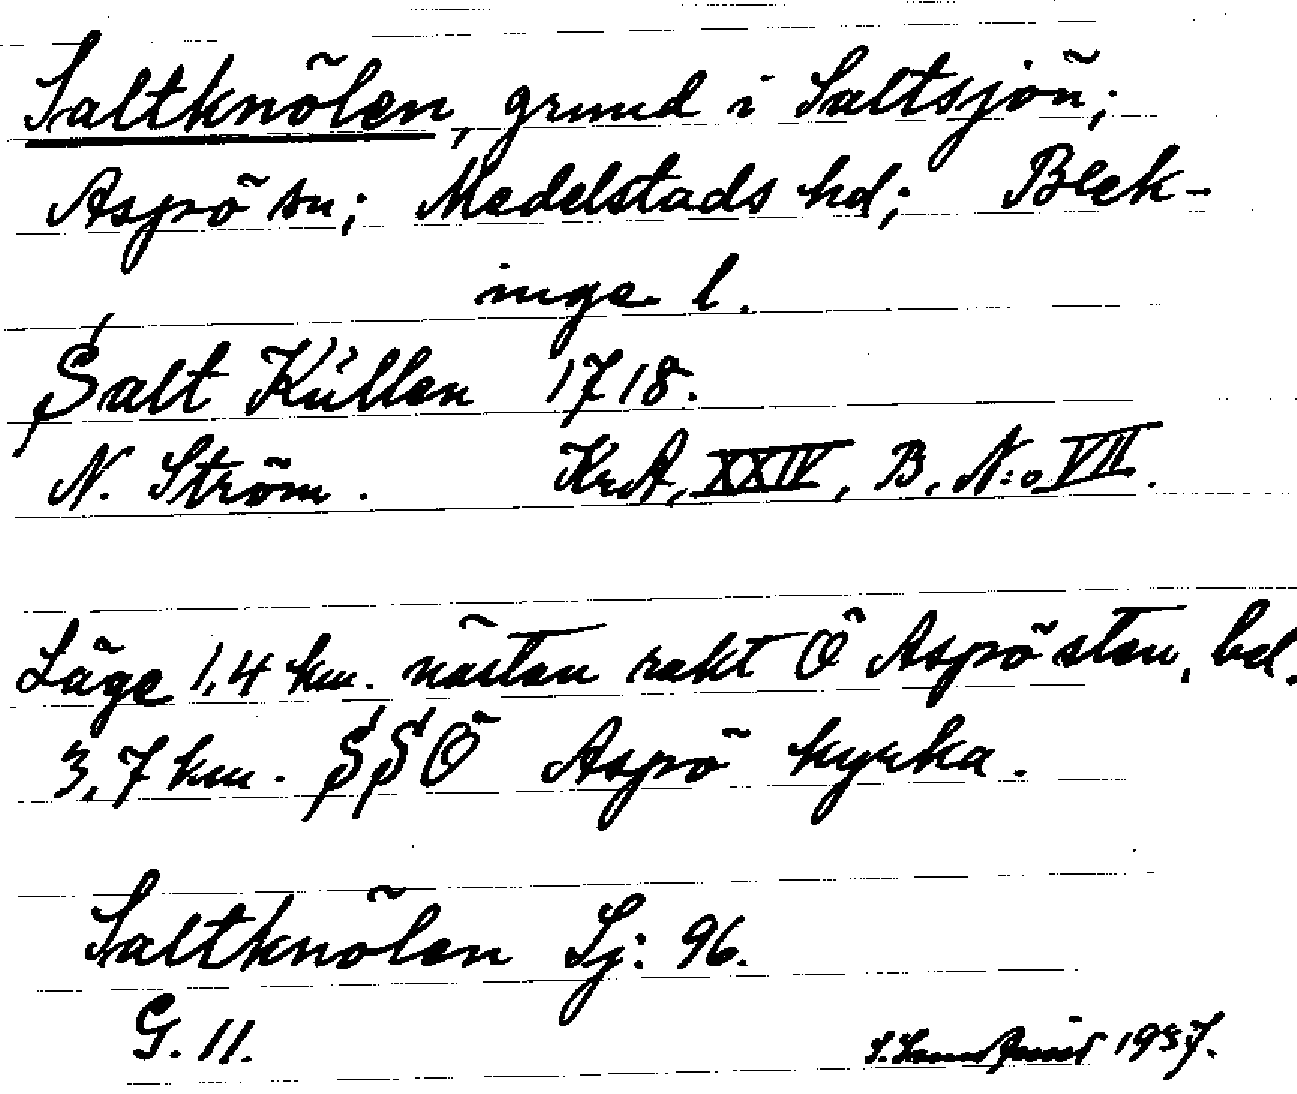 Saltknölen, grund i Saltsjön;
Aspö sn; Medelstads hd; Blek-
inge l.
Salt Küllen 1718.
N. Ström. KrA, XXIV, B, N:o VII.
Läge 1,4 km. nästan rakt Ö Aspösten, bel.
3,7 km. SSÖ Aspö kyrka.
Saltknölen Sj: 96.
G. 11.
1937.